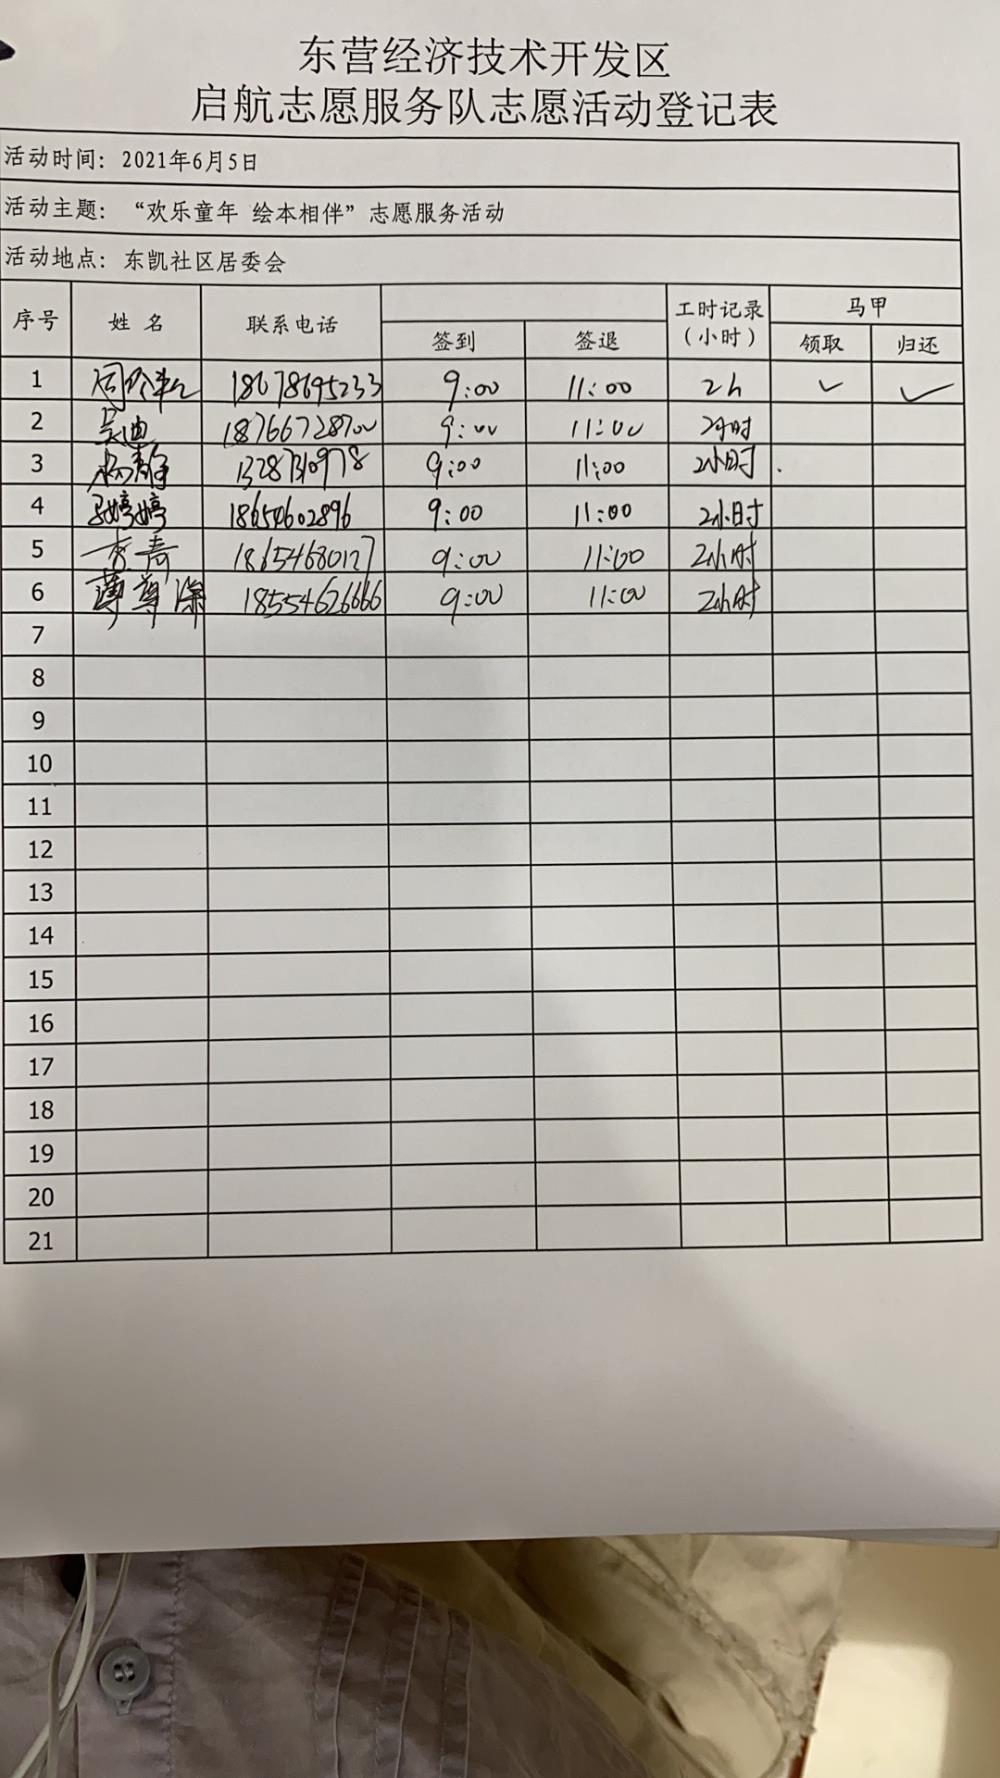 东营经济技术开发区
启航志愿服务队志愿活动登记表
活动时间：2021年6月5日
活动主题：“欢乐童年 绘本相伴”志愿服务活动
活动地点：东凯社区居委会
序号 姓 名 联系电话 工时记录（小时） 马甲
签到 签退 领取 归还
1 18678695233 9:00 11:00 2h ✓ ✓
2 吴迪 18766728700 9:00 11:00 2小时
3 杨静 9:00 11:00 2小时
4 马婷婷 18654602896 9:00 11:00 2小时
5 18654680127 9:00 11:00 2小时
6 薄尊 18554626666 9:00 11:00 2小时
7
8
9
10
11
12
13
14
15
16
17
18
19
20
21